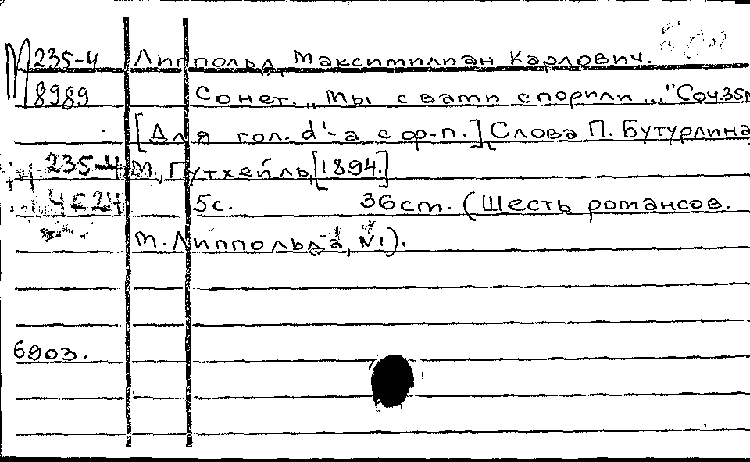 М 235-4 Липпольд, Максимилиан Карлович.
8989 Сонет. „Мы с вами спорили ..." Соч. 35
[Для гол. d'-a с ф-п.] Слова П. Бутурлина
235-4 М., Гутхейль, [1894.]
5с. 36 cm. (Шесть романсов.
М. Липпольда, №1).
6903.